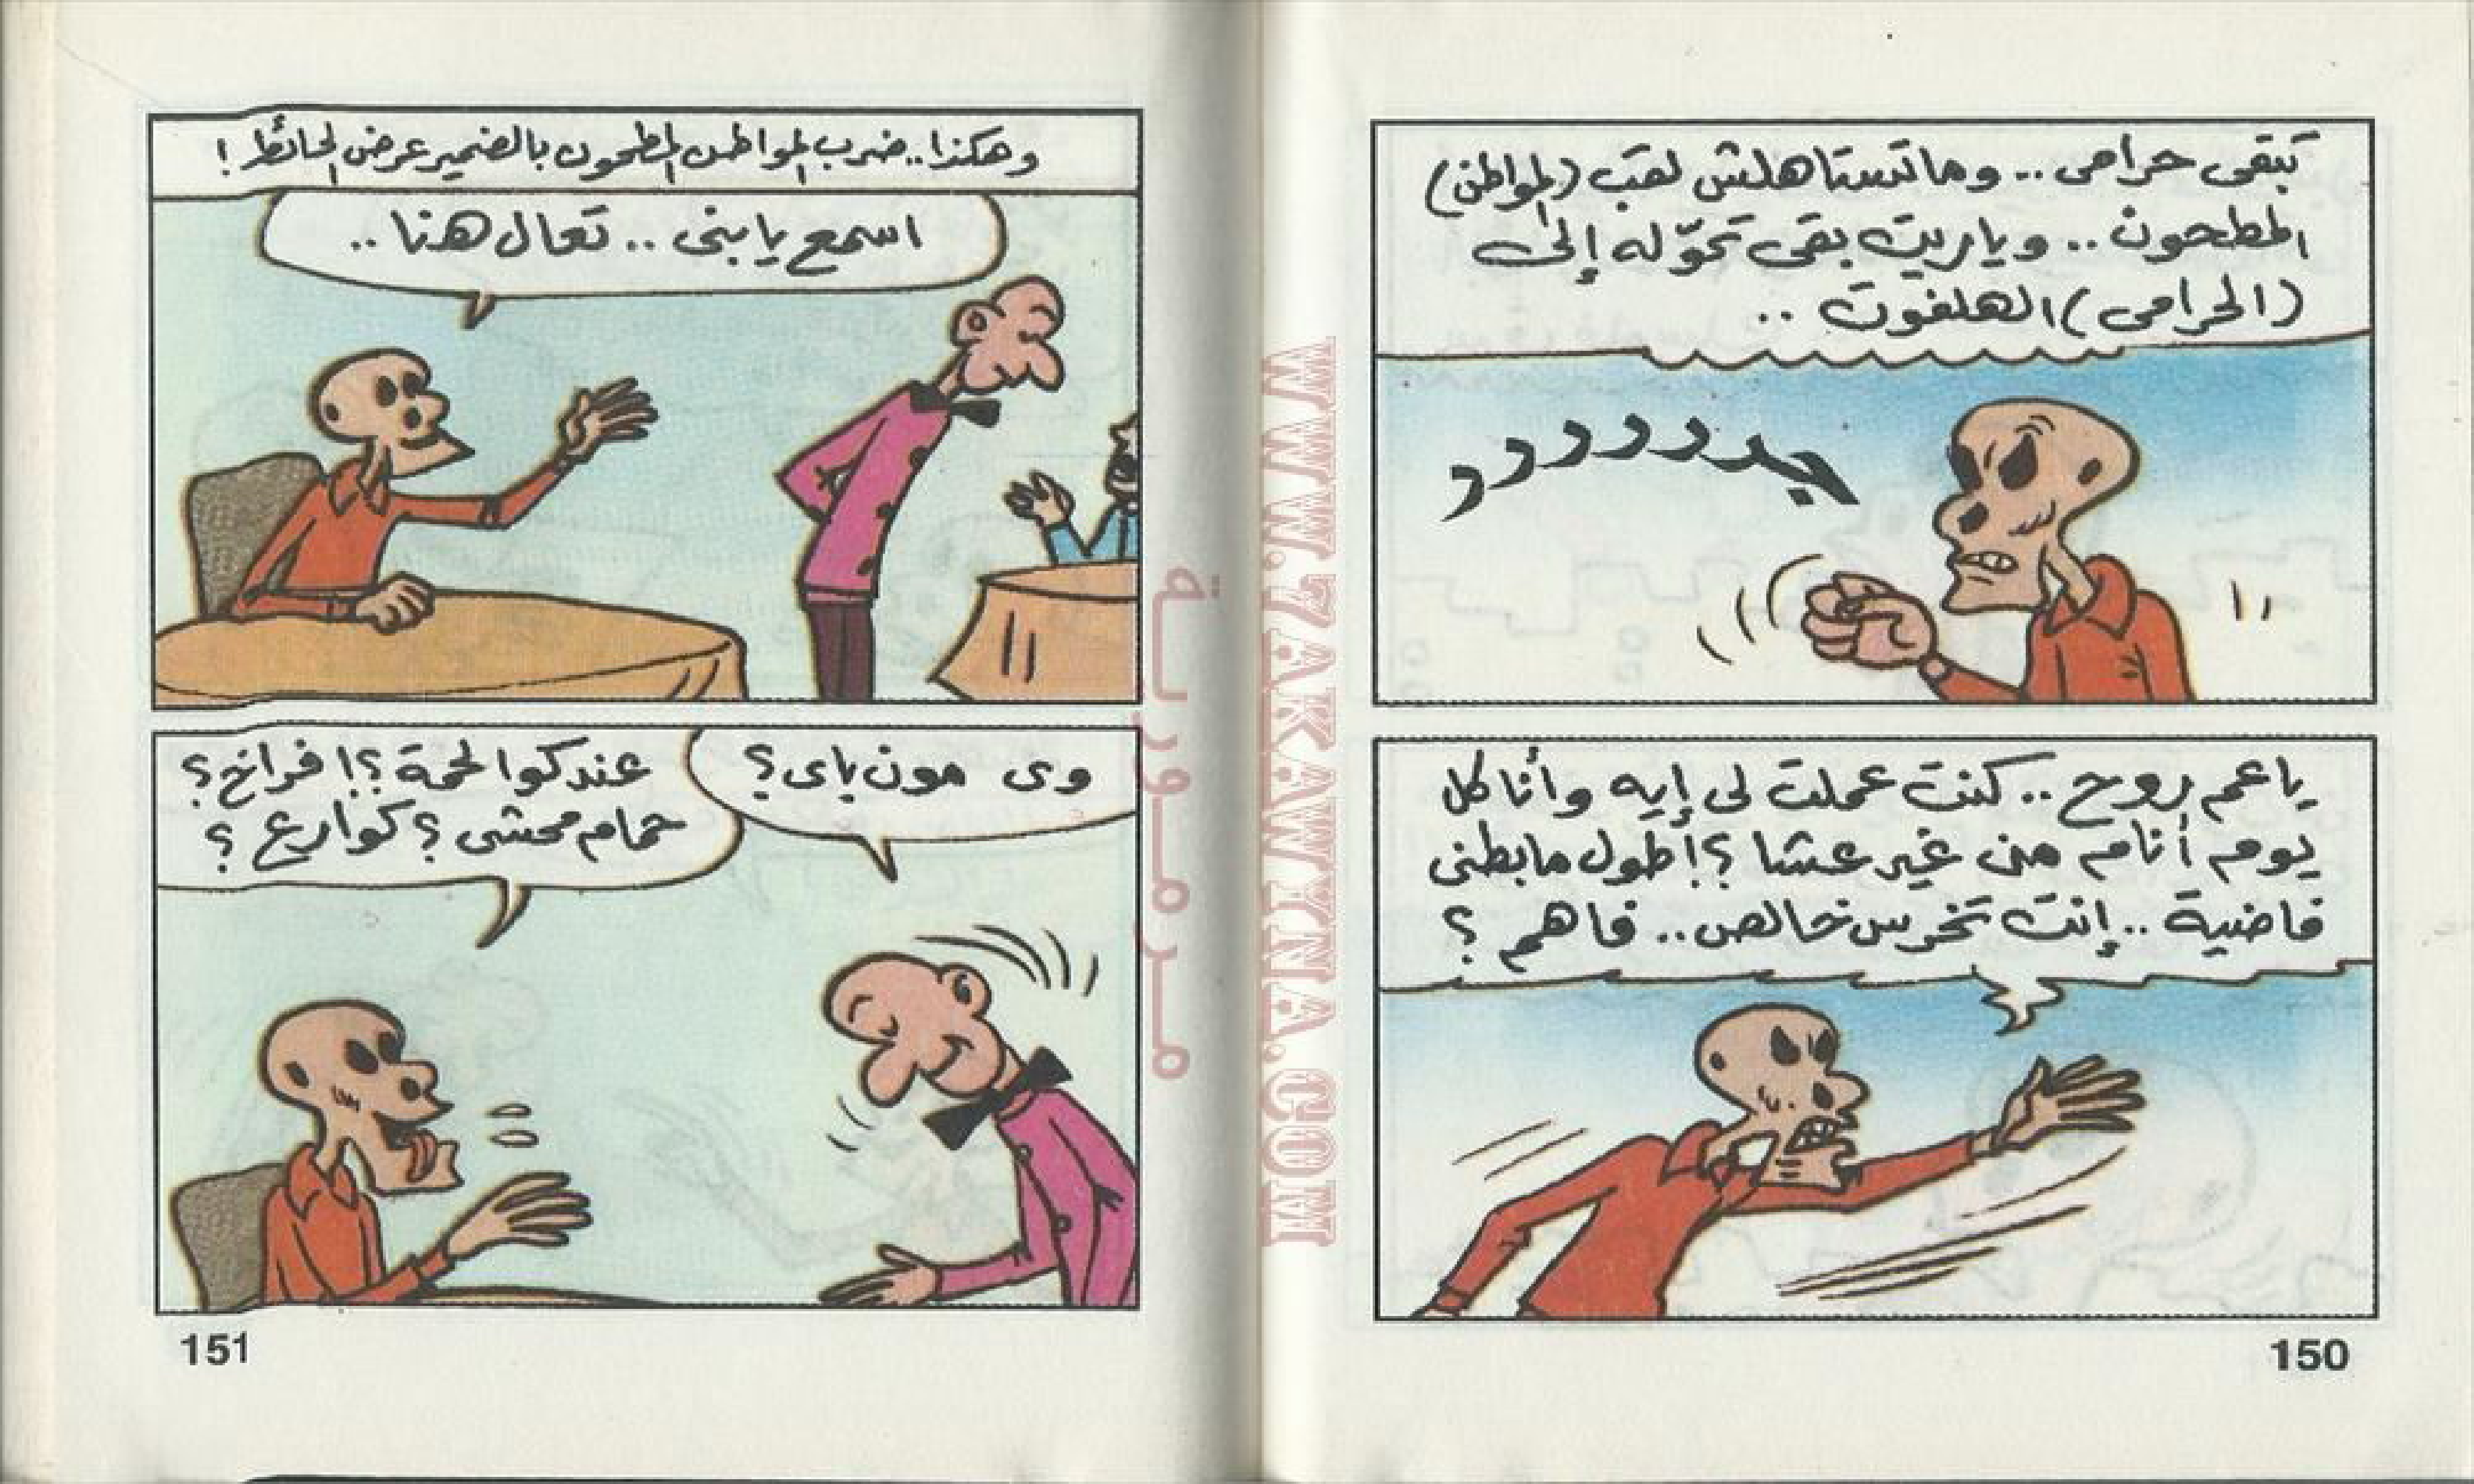 تبقى حرامى .. وما تستاهلش لقب (المواطن)
المطحون .. وياريت بقى تحوّله إلى
(الحرامى) الهلفوت ..
ياعم روح .. كنت عملت لى إيه وأنا كل
يوم أنام من غير عشا ؟! طول ما بطنى
فاضية .. إنت تخرس خالص .. فاهم ؟
150
وهكذا .. ضرب المواطن المطحون بالضمير عرض الحائط !
اسمع يا بنى .. تعال هنا ..
وى مون باى ؟
عندكوا لحمة ؟! فراخ ؟
حمام محشى ؟ كوارع ؟
151
مرمورية
WWW.7AKAWYNA.COM